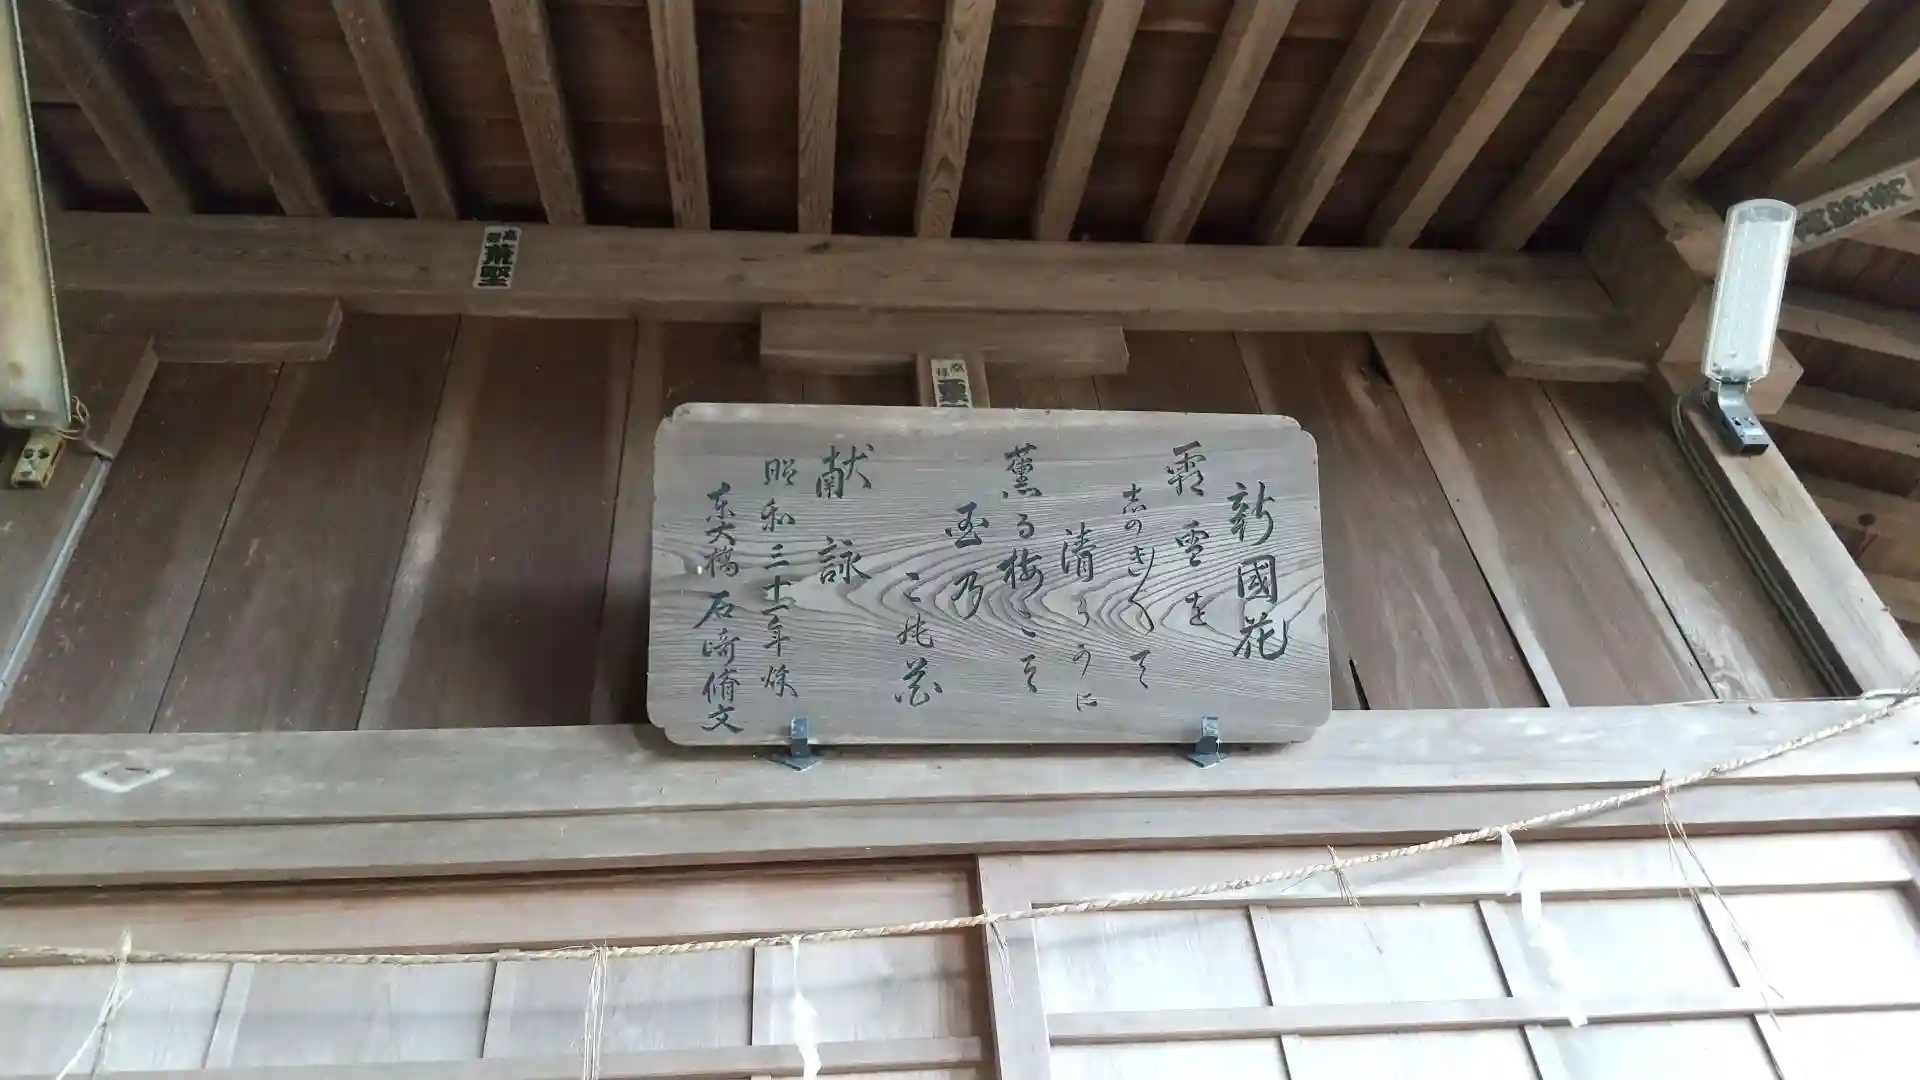 新國花
霜雪を
志のきへて
清らうに
薫る梅こそ
国乃
こ能花
献詠
昭和三十一年
東大橋 石﨑脩文